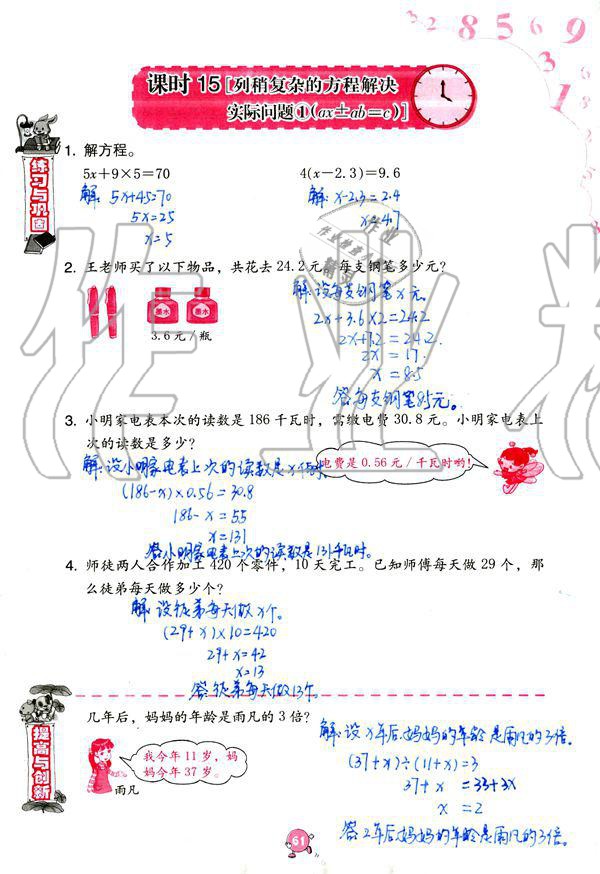 3 2 8 5 6 9 3 1
课时 15 [列稍复杂的方程解决
实际问题①(ax±ab=c)]
练习与巩固
1. 解方程。
5x+9×5=70
4(x-2.3)=9.6
解: 5x+45=70
解: x-2.3=2.4
5x=25
x=4.7
x=5
2. 王老师买了以下物品，共花去 24.2 元。每支钢笔多少元?
墨水 墨水
3.6 元/瓶
解:设每支钢笔x元。
2x+3.6×2=24.2
2x+7.2=24.2
2x=17.
x=8.5
答:每支钢笔8.5元。
3. 小明家电表本次的读数是 186 千瓦时，需缴电费 30.8 元。小明家电表上
次的读数是多少?
解:设小明家电表上次的读数是x千瓦时.
电费是 0.56 元/千瓦时哟!
(186-x)×0.56=30.8
186-x=55
x=131
答:小明家电表上次的读数是131千瓦时。
4. 师徒两人合作加工 420 个零件，10 天完工。已知师傅每天做 29 个，那
么徒弟每天做多少个?
解:设徒弟每天做x个。
(29+x)×10=420
29+x=42
x=13
答:徒弟每天做13个。
提高与创新
几年后，妈妈的年龄是雨凡的 3 倍?
我今年 11 岁，妈
妈今年 37 岁。
雨凡
解:设x年后,妈妈的年龄是雨凡的3倍。
(37+x)÷(11+x)=3
37+x=33+3x
x=2
答:2年后,妈妈的年龄是雨凡的3倍。
61